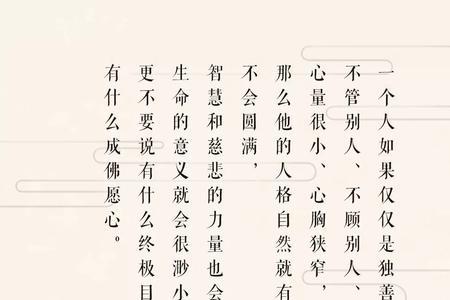 一个人如果仅仅是独善
不管别人、不顾别人、
心量很小、心胸狭窄，
那么他的人格自然就有
不会圆满，
智慧和慈悲的力量也会
生命的意义就会很渺小
更不要说有什么终极目
有什么成佛愿心。